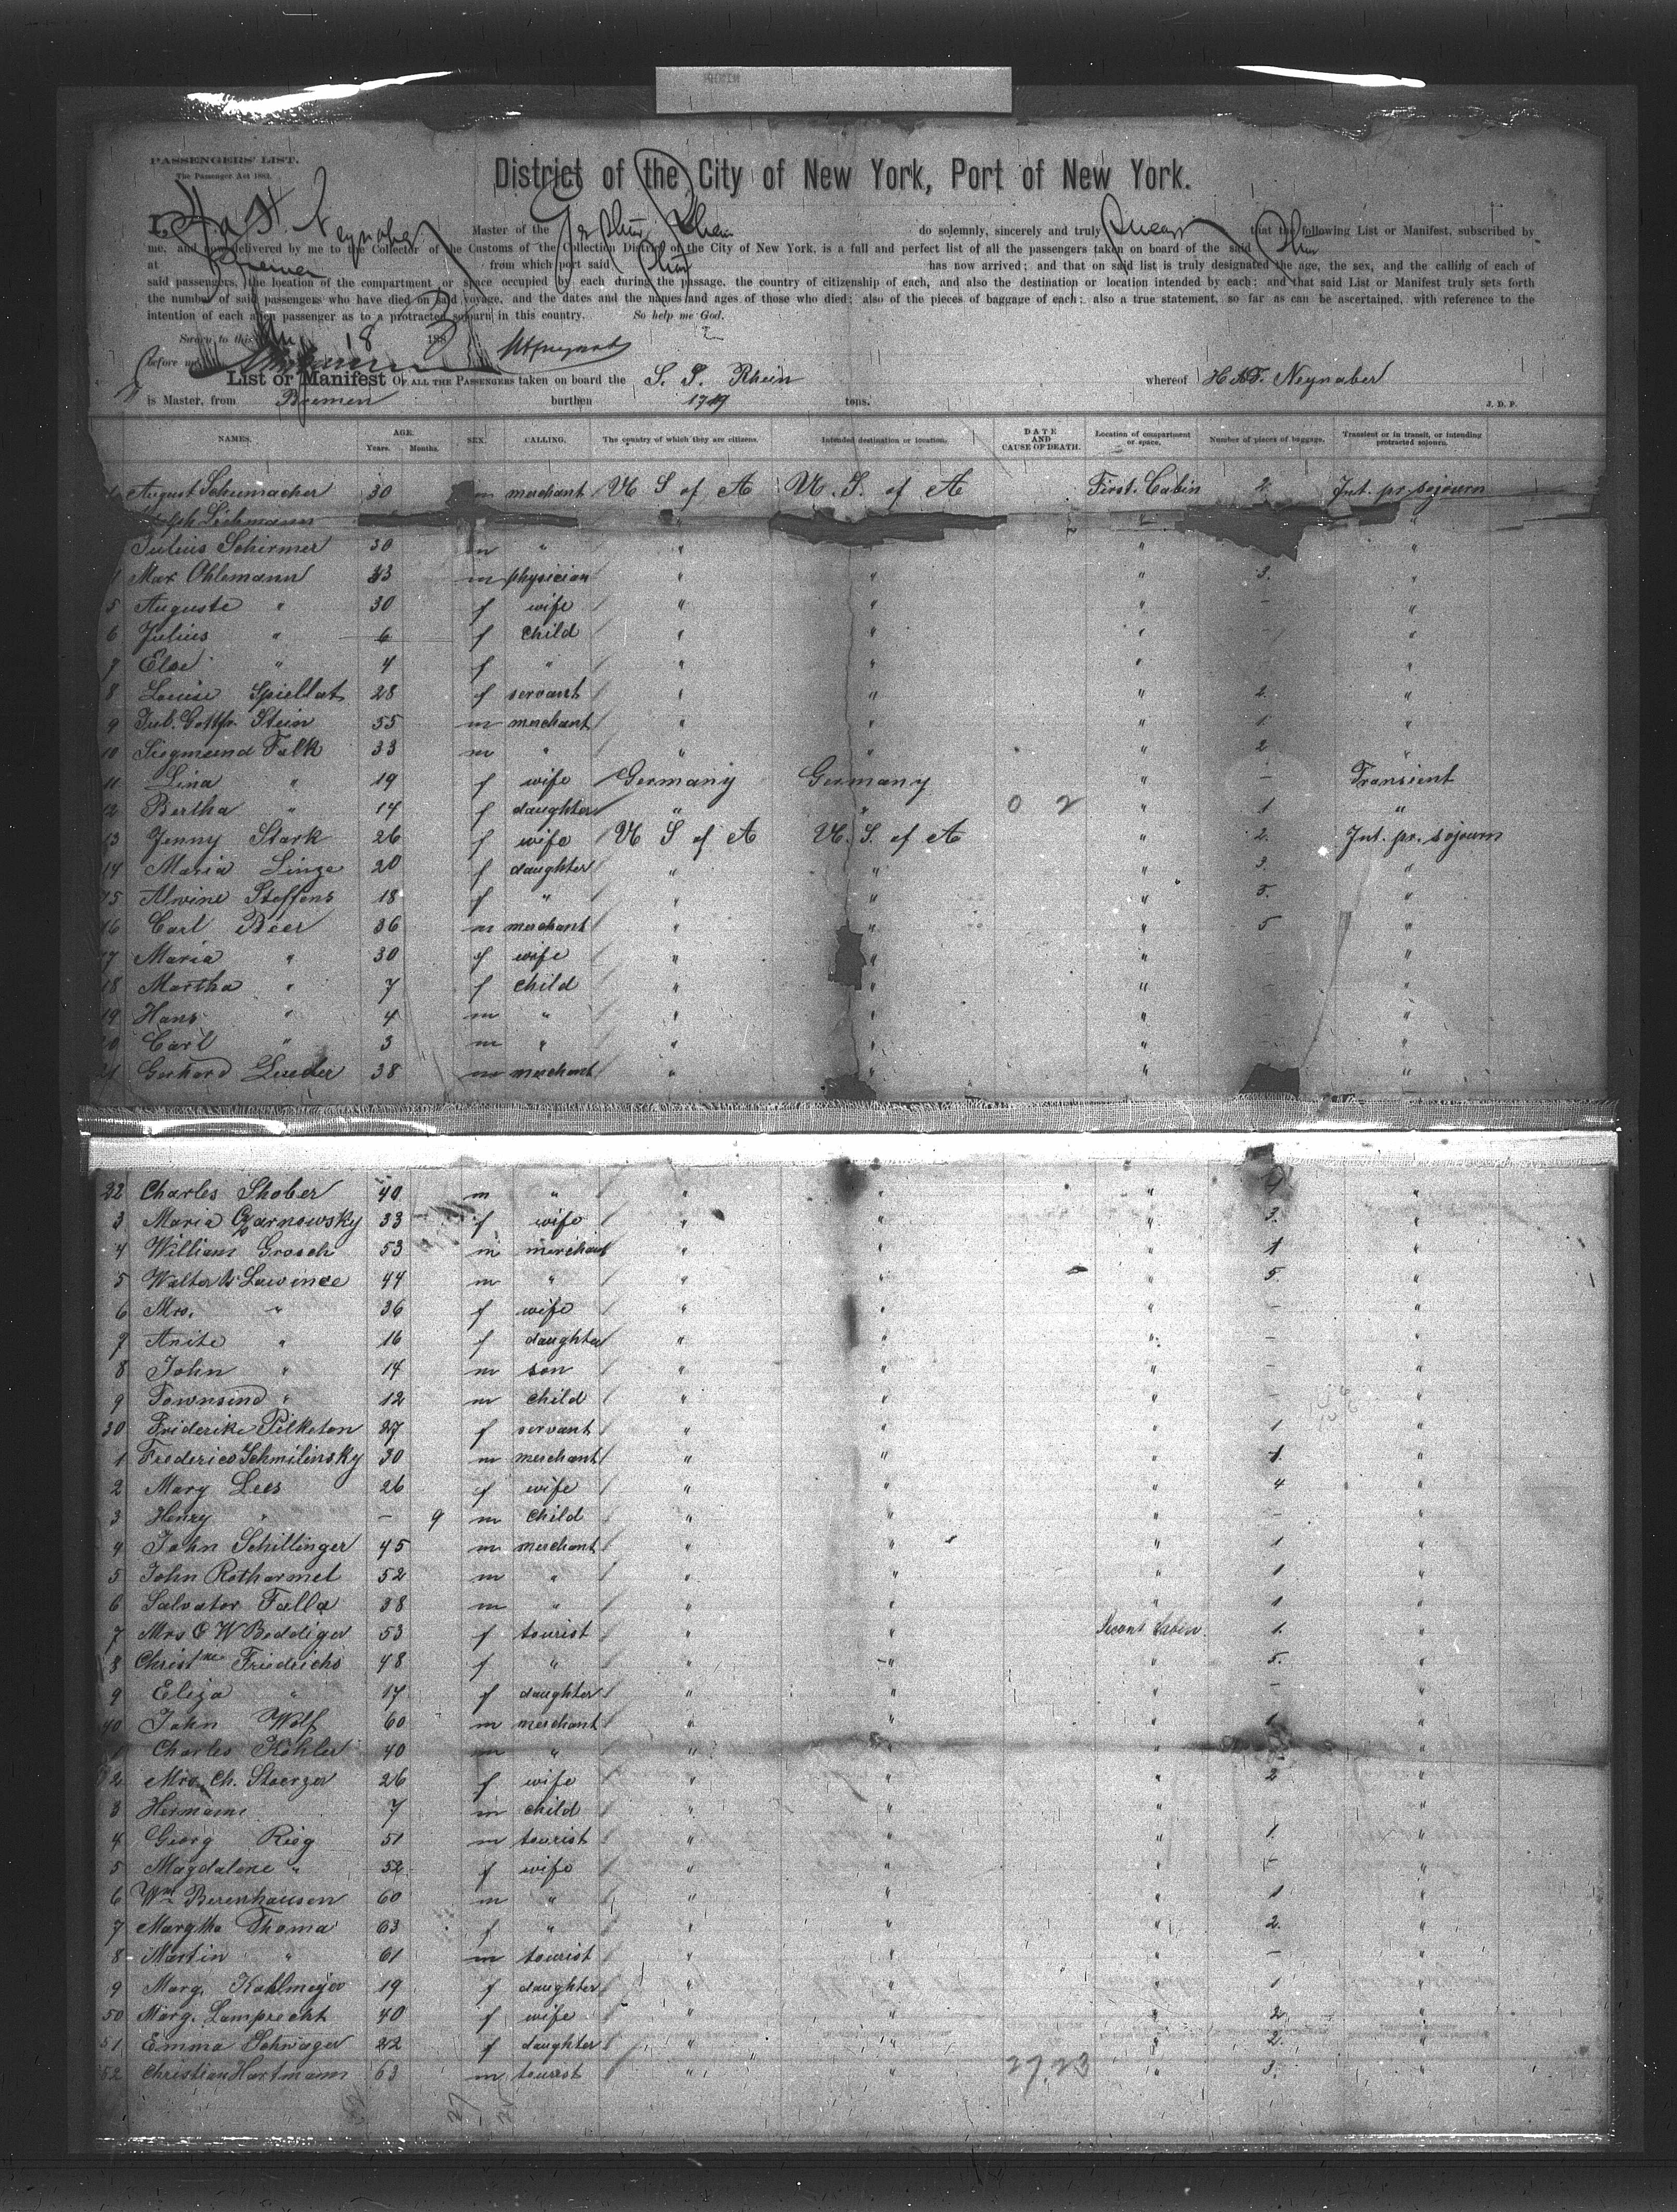 PASSENGERS' LIST.
The Passenger Act 1882.
District of the City of New York, Port of New York.
I, Master of the do solemnly, sincerely and truly that the following List or Manifest, subscribed by
me, and now delivered by me to the Collector of the Customs of the Collection District of the City of New York, is a full and perfect list of all the passengers taken on board of the said
at Bremen from which port said has now arrived; and that on said list is truly designated the age, the sex, and the calling of each of
said passengers, the location of the compartment or space occupied by each during the passage, the country of citizenship of each, and also the destination or location intended by each; and that said List or Manifest truly sets forth
the number of said passengers who have died on said voyage, and the dates and the names and ages of those who died; also of the pieces of baggage of each; also a true statement, so far as can be ascertained, with reference to the
intention of each alien passenger as to a protracted sojourn in this country. So help me God.
Sworn to this 18 188
before me
List or Manifest OF ALL THE PASSENGERS taken on board the S. S. Rhein whereof Neynaber
is Master, from Bremen burthen tons. J. D. P.
NAMES. AGE. Years. Months. SEX. CALLING. The country of which they are citizens. Intended destination or location. DATE AND CAUSE OF DEATH. Location of compartment or space. Number of pieces of baggage. Transient or in transit, or intending protracted sojourn.
August Schumacher 30 m merchant U S of A U. S. of A First. Cabin 2 Int. pr. sojourn
Lishmann " " "
Julius Schirmer 30 m " " " "
Max Ohlemann 33 m physician " " " 3. "
5 Auguste " 30 f wife " " " - "
6 Julius " 6 f child " " " "
7 Else " 4 f " " " " "
8 Louise Spiellat 28 f servant " " " 2. "
9 Jul. Gottfr. Stein 55 m merchant " " " 1. "
10 Siegmund Falk 33 m " " " " 2 "
11 Lina " 19 f wife Germany Germany " - Transient
12 Bertha " 14 f daughter " " 0 2 " 1 "
13 Jenny Stark 26 f wife U S of A U. S. of A " 2. Int. pr. sojourn
14 Maria Linge 20 f daughter " " " 3. "
15 Alwine Steffens 18 f " " " " 5. "
16 Carl Beer 36 m merchant " " " 5 "
17 Maria " 30 f wife " " " "
18 Martha " 7 f child " " " "
19 Hans " 4 m " " " " "
20 Carl " 3 m " " " " "
21 Gerhard Lueder 38 m merchant " " " "
22 Charles Shober 40 m " " " " "
3 Maria Czarnowsky 33 f wife " " " 3. "
4 William Grosch 53 m merchant " " " 1 "
5 Walter Lawince 44 m " " " " 5. "
6 Mrs. " 36 f wife " " " - "
7 Anite " 16 f daughter " " " - "
8 John " 14 m son " " " - "
9 Townsend " 12 m child " " " - "
30 Friderike Pilketon 27 f servant " " " 1 "
1 Frederico Schmilinsky 30 m merchant " " " 1. "
2 Mary Lees 26 f wife " " " 4 "
3 Henry " - 9 m child " " " - "
4 John Schillinger 45 m merchant " " " 1 "
5 John Rotharmel 52 m " " " " 1. "
6 Salvator Falla 38 m " " " " 1 "
7 Mrs C W Boddiger 53 f tourist " " Second Cabin 1. "
8 Christne Friedrichs 48 f " " " " 5. "
9 Eliza " 17 f daughter " " " - "
40 John Wolf 60 m merchant " " " 1 "
1 Charles Kohler 40 m " " " " "
2 Mrs. Ch. Stoerzer 26 f wife " " " 2 "
3 Hermann 7 m child " " " - "
4 Georg Rieg 51 m tourist " " " 1. "
5 Magdalene " 52 f wife " " " - "
6 Wm Berenhausen 60 m " " " " 1 "
7 Margtha Thoma 63 f " " " " 2. "
8 Martin " 61 m tourist " " " - "
9 Marg. Kahlmeyer 19 f daughter " " " 1 "
50 Marg. Lamprecht 40 f wife " " " 2. "
51 Emma Schwager 22 f daughter " " " 2. "
52 Christian Hartmann 63 m tourist " " 27.23 " 3. "
27